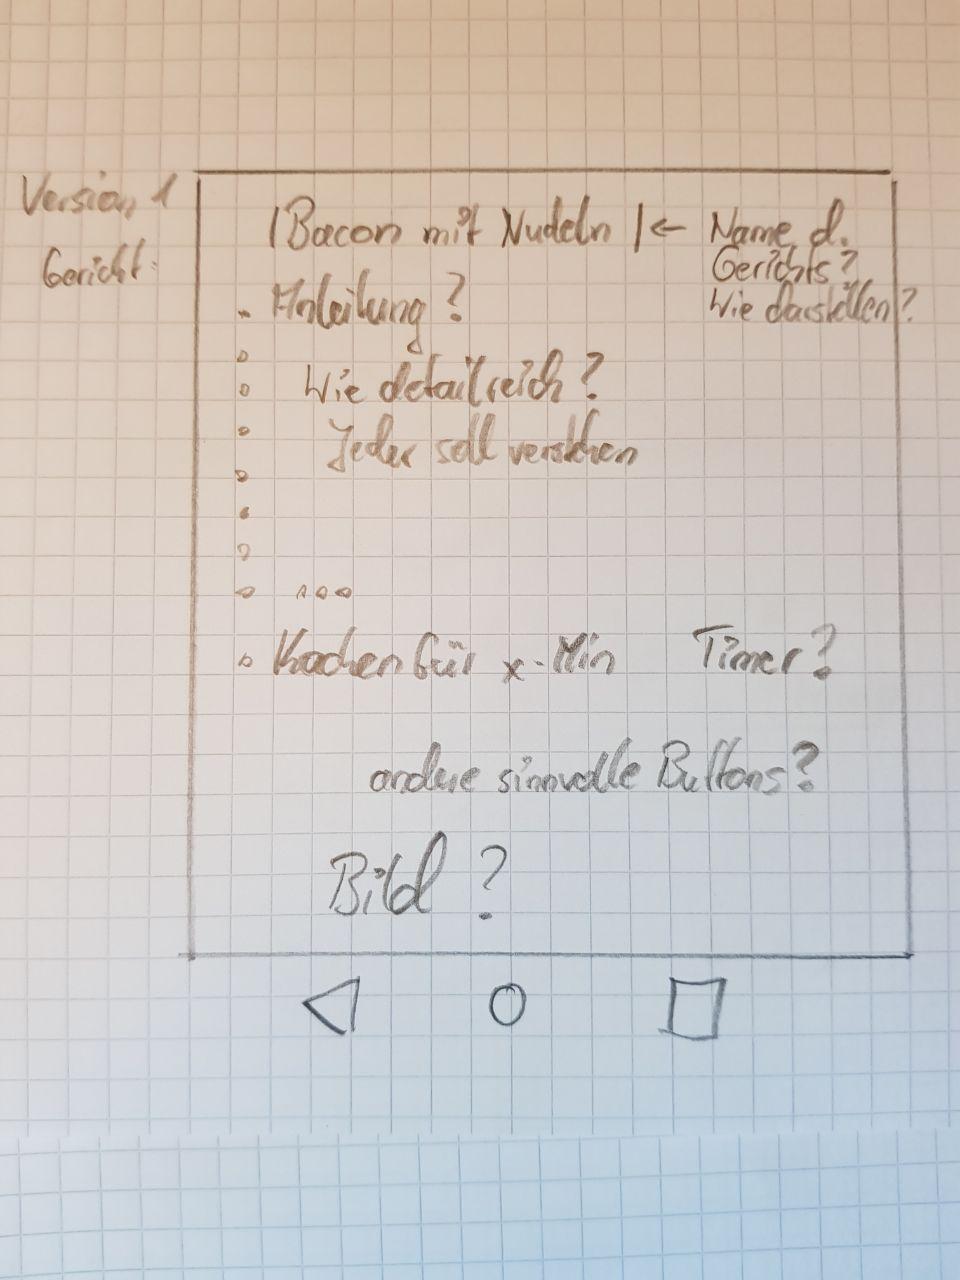 Version 1
Gericht:
|Bacon mit Nudeln| ← Name d.
Gerichts?
Wie darstellen?
Anleitung?
Wie detailreich?
Jeder soll verstehen
...
Kochen für x-Min Timer?
andere sinnvolle Buttons?
Bild ?